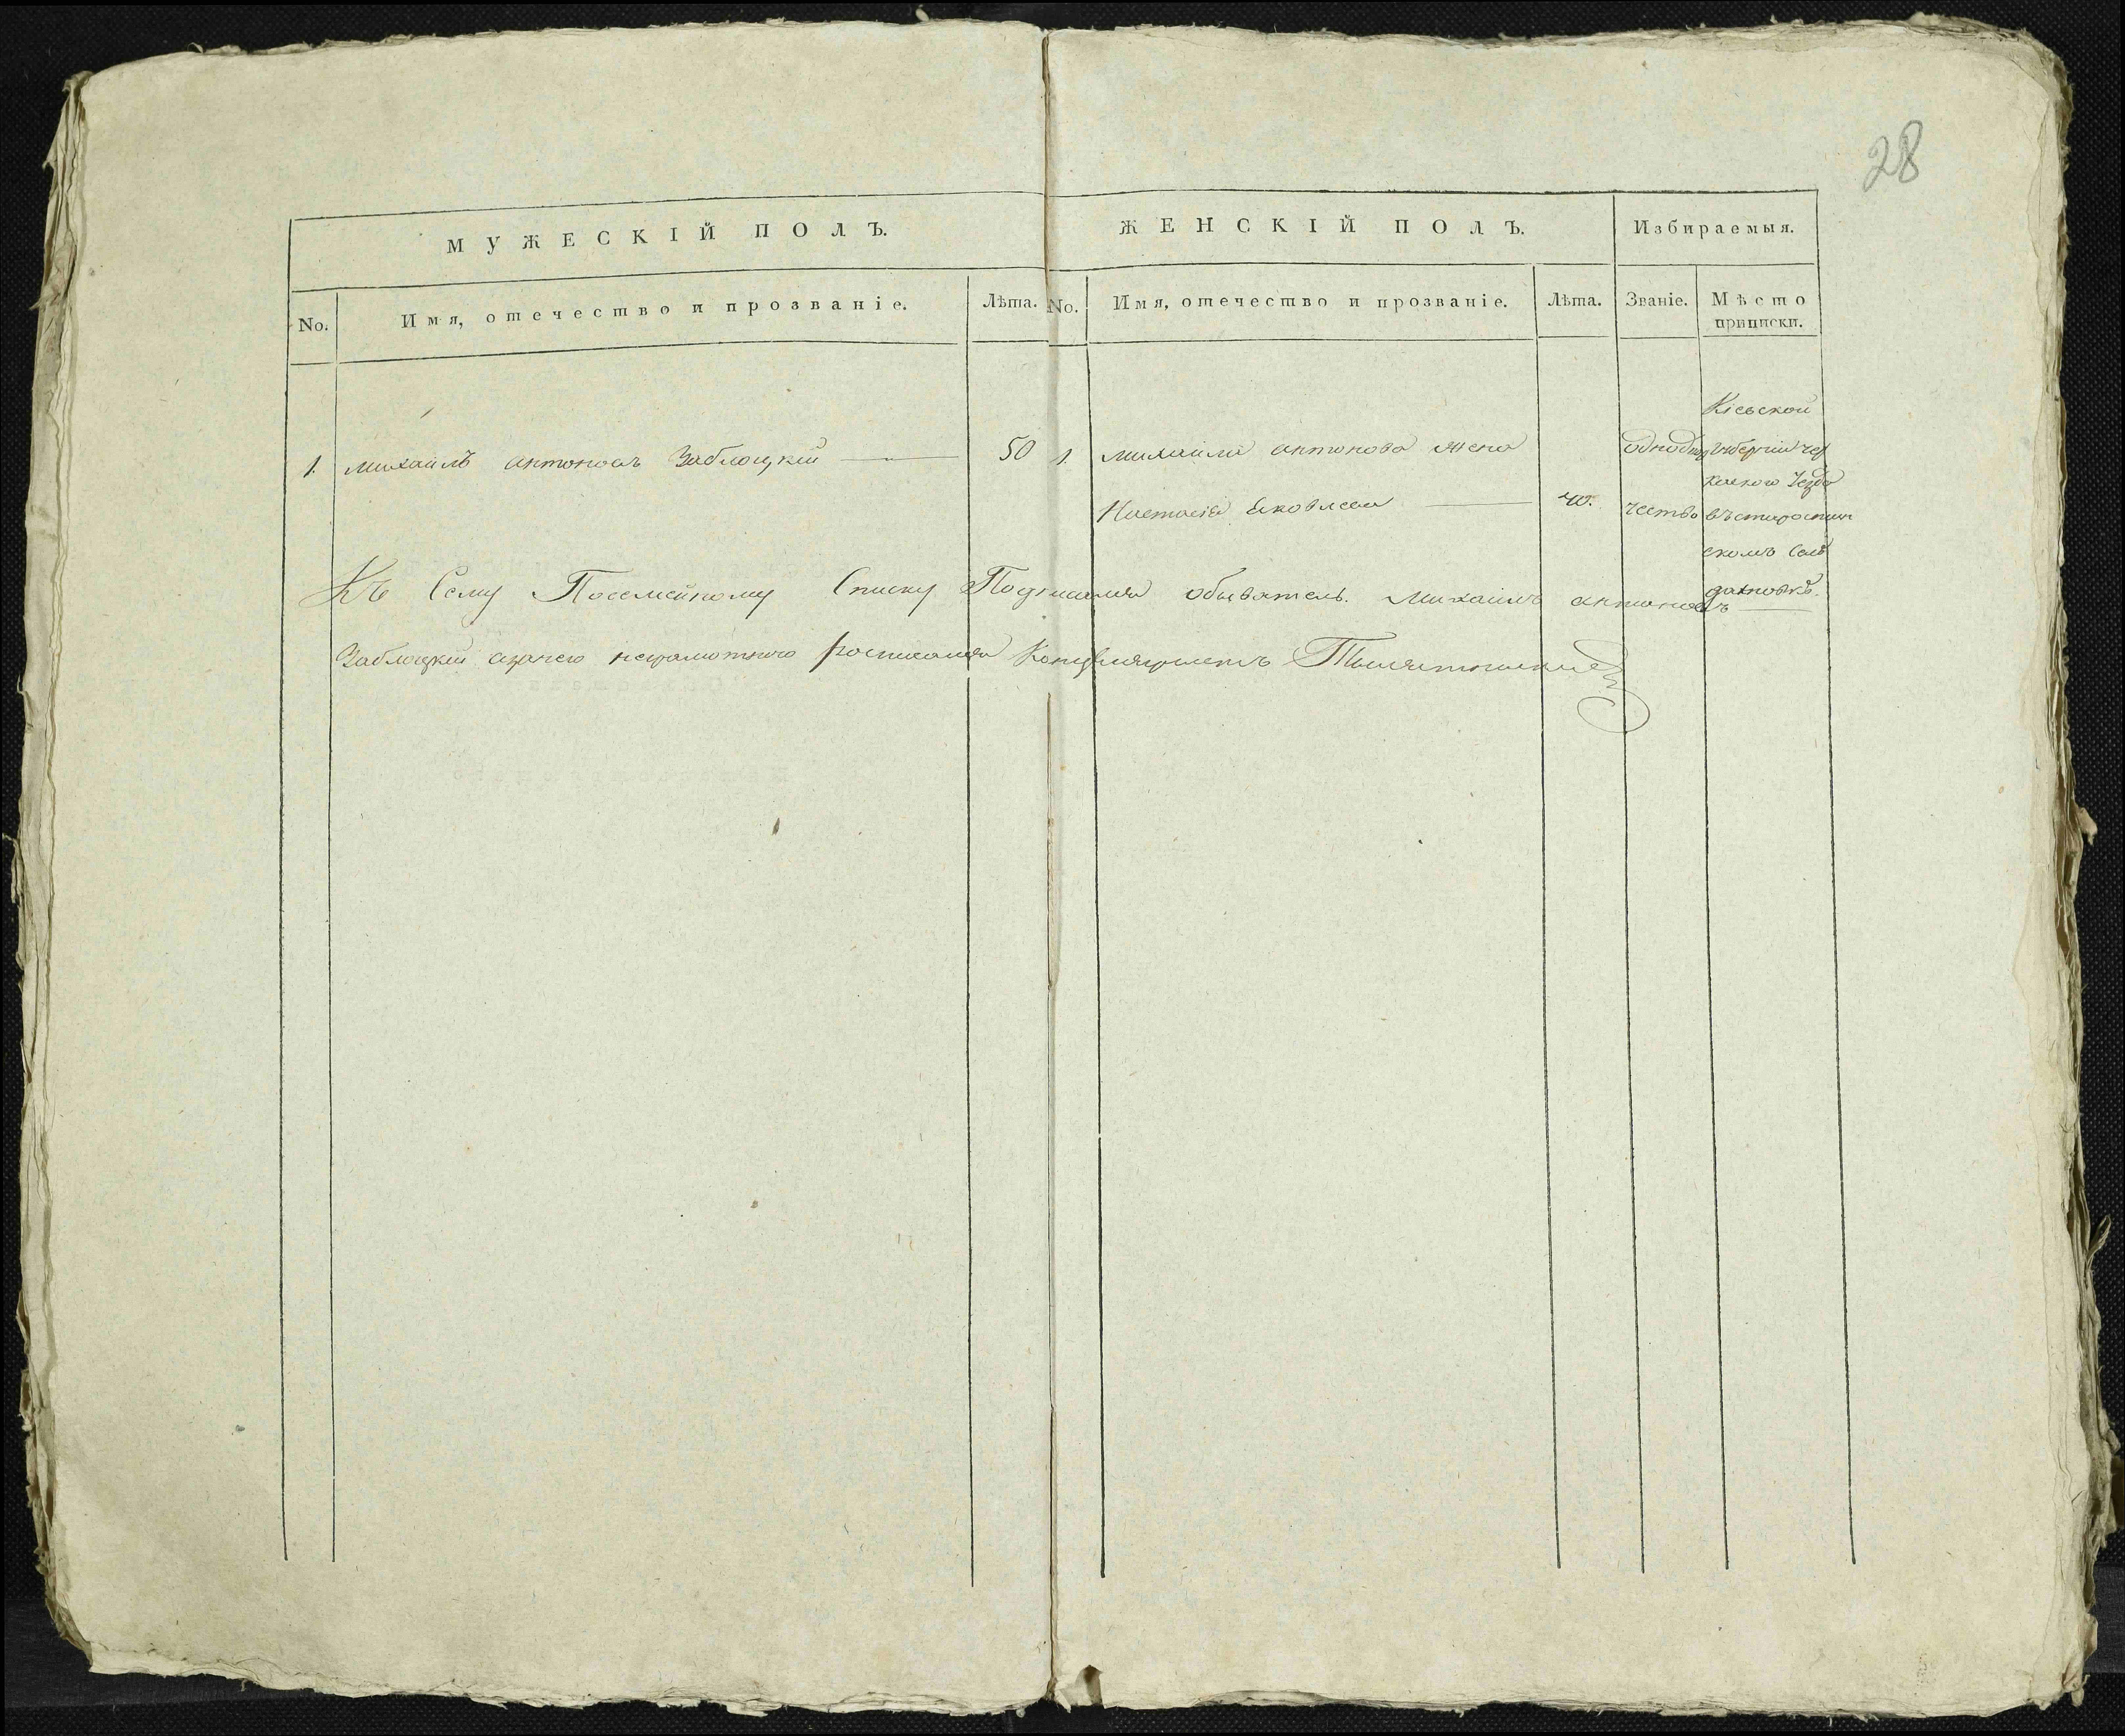 28
МУЖЕСКІЙ ПОЛЪ.
ЖЕНСКІЙ ПОЛЪ.
Избираемыя.
No.
Имя, отечество и прозваніе.
Лѣта.
No.
Имя, отечество и прозваніе.
Лѣта.
Званіе.
Мѣсто
приписки.
1. Михаилъ Антоновъ Заблоцкій
50
1. Михаила Антонова жена
Настасія Яковлева
40.
однодвор
чество
Кіевской
губерніи чер
каского уезда
въ старостин
скомъ селѣ
Къ Сему Посемейному Списку Подписался обыватель Михаилъ Антоновъ
Заблоцкій а занего неграмотного росписался Канцеляристъ